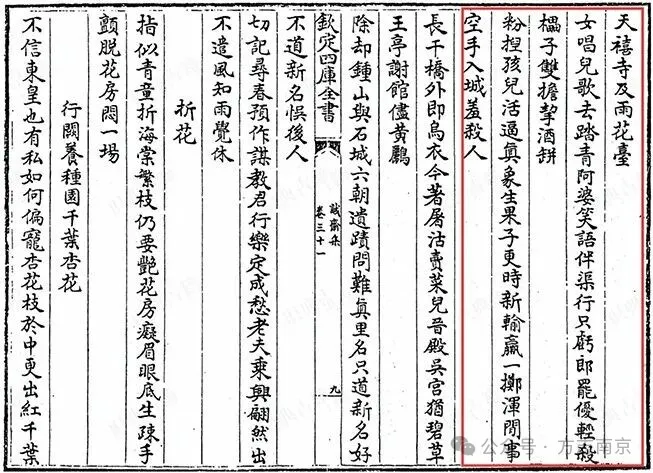 天禧寺及雨花臺
女唱兒歌去踏青阿婆笑語伴渠行只虧郎罷優輕殺
櫑子雙擔挈酒缾
粉捏孩兒活逼真象生果子更時新輸贏一擲渾閒事
空手入城羞殺人
長干橋外即烏衣今著屠沽賣菜兒晉殿吳宮猶碧草
王亭謝館儘黃鸝
除却鍾山與石城六朝遺蹟問難真里名只道新名好
欽定四庫全書
誠齋集
卷三十一
九
不道新名悞後人
切記尋春預作謀教君行樂定成愁老夫乘興翩然出
不遣風知雨覺休
折花
指似青童折海棠繁枝仍要艷花房癡眉眼底生踈手
顫脫花房悶一場
行闕養種園千葉杏花
不信東皇也有私如何偏寵杏花枝於中更出紅千葉
公众号·方志南京